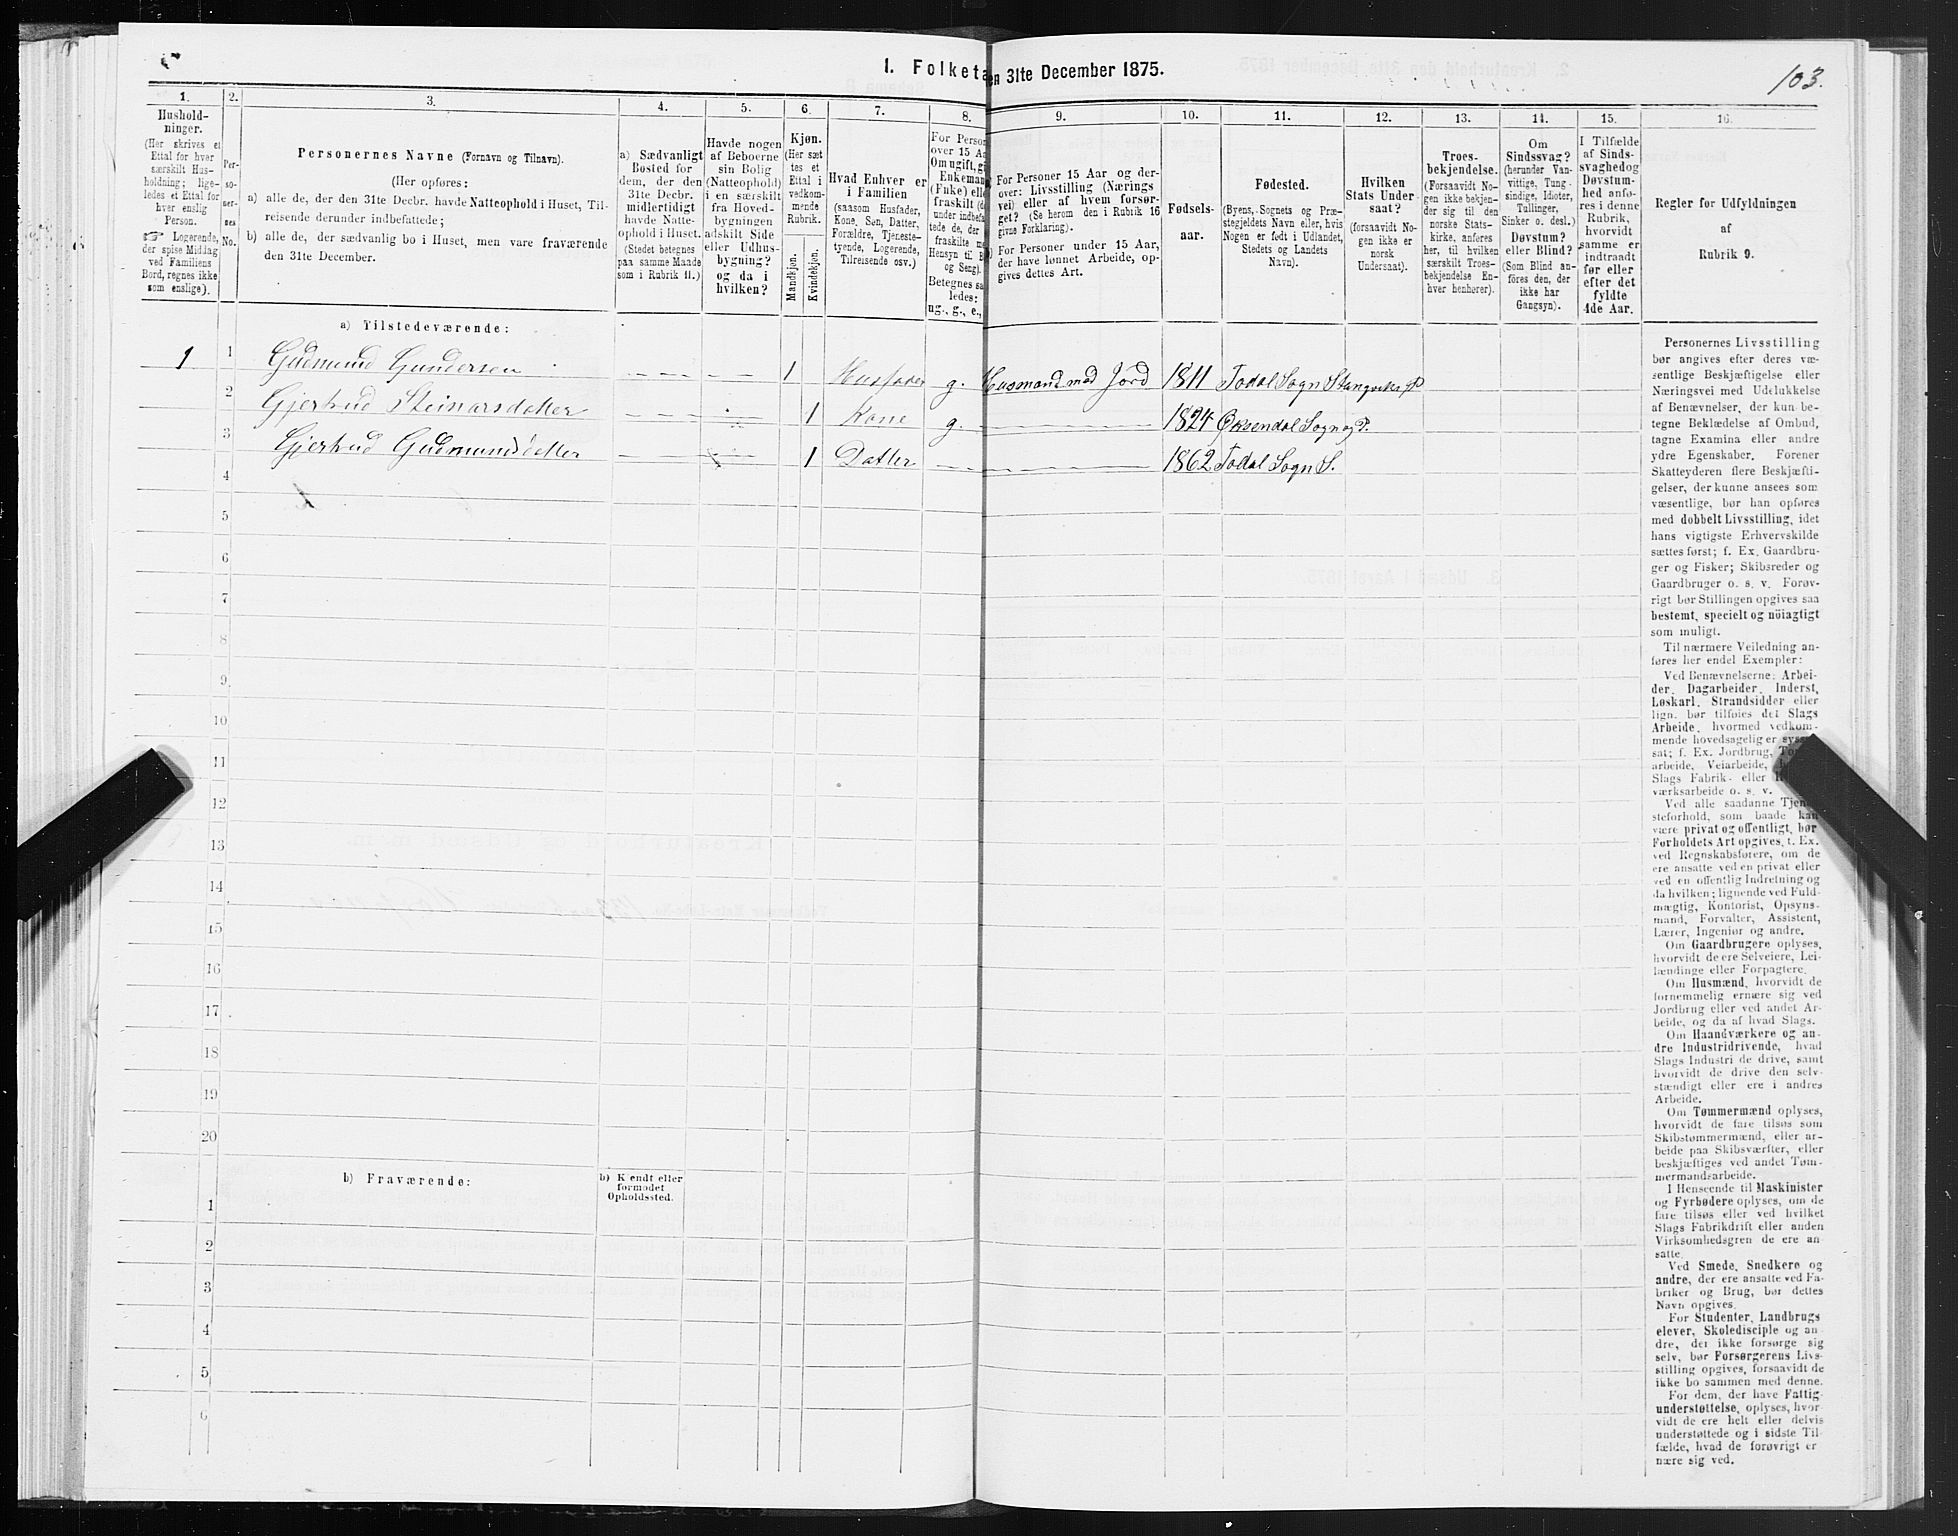 103.
1. Folketæ
en 31te December 1875.
1.
2.
3.
4.
5.
6.
7.
8.
9.
10.
11.
12.
13.
14.
15.
16.
Hushold-
ninger.
(Her skrives et
Ettal for hver
særskilt Hus-
holdning; lige-
ledes et Ettal for
hver enslig
Person.
Logerende,
der spise Middag
ved Familiens
Bord, regnes ikke
som enslige).
Per-
so-
ner-
nes
No.
Personernes Navne (Fornavn og Tilnavn).
(Her opføres:
a) alle de, der den 31te Decbr. havde Natteophold i Huset, Til-
reisende derunder indbefattede;
b) alle de, der sædvanlig bo i Huset, men vare fraværende
den 31te December.
a) Sædvanligt
Bosted for
dem, der den
31te Decbr.
midlertidigt
havde Natte-
ophold i Huset.
(Stedet betegnes
paa samme Maade
som i Rubrik 11.)
Havde nogen
af Beboerne
sin Bolig
(Natteophold)
i en særskilt
fra Hoved-
bygningen
adskilt Side
eller Udhus-
bygning?
og da i
hvilken?
Kjøn.
(Her sæt
tes et
Ettal i
vedkom-
mende
Rubrik.
Mandkjøn.
Kvindekjøn.
Hvad Enhver er
i Familien
(saasom Husfader,
Kone, Søn, Datter,
Forældre, Tjeneste-
tyende, Logerende,
Tilreisende osv.)
For Person
over 15 Aa
Om ugift, gi
Enkeman
(Enke) elle
fraskilt (d
under indbefa
tede de, der
fraskilte m
Hensyn til B
og Seng).
Betegnes sa
ledes:
ug., g., e.,
For Personer 15 Aar og der-
over: Livsstilling (Nærings
vei) eller af hvem forsør-
get? (Se herom den i Rubrik 16
givne Forklaring).
For Personer under 15 Aar,
der have lønnet Arbeide, op-
gives dettes Art.
Fødsels-
aar.
Fødested.
(Byens, Sognets og Præ-
stegjeldets Navn eller, hvis
Nogen er født i Udlandet,
Stedets og Landets
Navn).
Hvilken
Stats Under-
saat?
(forsaavidt No-
gen ikke er
norsk
Undersaat).
Troes-
bekjendelse.
(Forsaavidt No-
gen ikke bekjen-
der sig til den
norske Stats-
kirke, anføres
her, til hvilken
særskilt Troes-
bekjendelse En-
hver henhører).
Om
Sindssvag?
(herunder Van-
vittige, Tung-
sindige, Idioter,
Tullinger,
Sinker o. desl.)
Døvstum?
eller Blind?
(Som Blind an-
føres den, der
ikke har
Gangsyn).
I Tilfælde
af Sinds-
svaghed og
Døvstum-
hed anfø-
res i denne
Rubrik,
hvorvidt
samme er
indtraadt
før eller
efter det
fyldte
4de Aar.
Regler for Udfyldningen
af
Rubrik 9.
a) Tilstedeværende:
1 1 Gudmund Gundersen 1 Husfader g. Husmand med Jord 1811 Todal Sogn Stangviks P
2 Gjertrud Steinarsdatter 1 Kone g. 1824 Øksendal Sogn og P.
3 Gjertrud Gudmundsdatter 1 Datter 1862 Todal Sogn S.
4
5
6
7
8
9
10
11
12
13
14
15
16
17
18
19
20
b) Fraværende:
b) Kjendt eller
formodet
Opholdssted.
1
2
3
4
5
6
Personernes Livsstilling
bør angives efter deres væ-
sentlige Beskjæftigelse eller
Næringsvei med Udelukkelse
af Benævnelser, der kun be-
tegne Beklædelse af Ombud,
tagne Examina eller andre
ydre Egenskaber. Forener
Skatteyderen flere Beskjæfti-
gelser, der kunne ansees som
væsentlige, bør han opføres
med dobbelt Livsstilling, idet
hans vigtigste Erhvervskilde
sættes først; f. Ex. Gaardbru-
ger og Fisker; Skibsreder og
Gaardbruger o. s. v. Forøv-
rigt bør Stillingen opgives saa
bestemt, specielt og nöiagtigt
som muligt.
Til nærmere Veiledning an-
føres her endel Exempler:
Ved Benævnelserne: Arbei-
der, Dagarbeider, Inderst,
Løskarl, Strandsidder eller
lign. bør tilføies det Slags
Arbeide, hvormed vedkom-
mende hovedsagelig er syssel
sat; f. Ex. Jordbrug, To
arbeide, Veiarbeide,
Slags Fabrik- eller
værksarbeide o. s. v.
Ved alle saadanne Tjen
steforhold, som baade kan
være privat og offentligt, bør
Forholdets Art opgives, f. Ex.
ved Regnskabsførere, om de
ere ansatte ved en privat eller
ved en offentlig Indretning og
da hvilken; lignende ved Fuld-
mægtig, Kontorist, Opsyns-
mand, Forvalter, Assistent,
Lærer, Ingeniør og andre.
Om Gaardbrugere oplyses,
hvorvidt de ere Selveiere, Lei-
lændinge eller Forpagtere.
Om Husmænd, hvorvidt de
fornemmelig ernære sig ved
Jordbrug eller ved andet Ar-
beide, og da af hvad Slags.
Om Haandværkere og an-
dre Industridrivende, hvad
Slags Industri de drive, samt
hvorvidt de drive den selv-
stændigt eller ere i andres
Arbeide.
Om Tømmermænd oplyses,
hvorvidt de fare tilsøs som
Skibstømmermænd, eller ar-
beide paa Skibsværfter, eller
beskjæftiges ved andet Tøm-
mermandsarbeide.
I Henseende til Maskinister
og Fyrbødere oplyses, om de
fare tilsøs eller ved hvilket
Slags Fabrikdrift eller anden
Virksomhedsgren de ere an-
satte.
Ved Smede, Snedkere og
andre, der ere ansatte ved Fa-
briker og Brug, bør dettes
Navn opgives.
For Studenter, Landbrugs
elever, Skoledisciple og an-
dre, der ikke forsørge sig
selv, bør Forsørgerens Livs-
stilling opgives, forsaavidt de
ikke bo sammen med denne.
For dem, der have Fattig-
understøttelse, oplyses, hvor-
vidt de ere helt eller delvis
understøttede og i sidste Til-
fælde, hvad de forøvrigt er
nære sig ved.